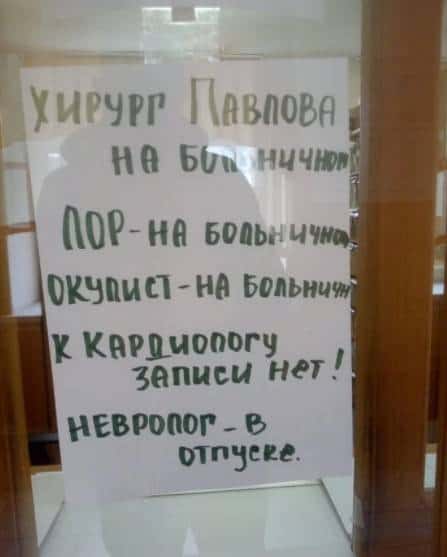 Хирург Павлова
на больничном
ЛОР-на больничном
Окулист-на больничн
К Кардиологу
записи нет!
Невролог-в
отпуске.